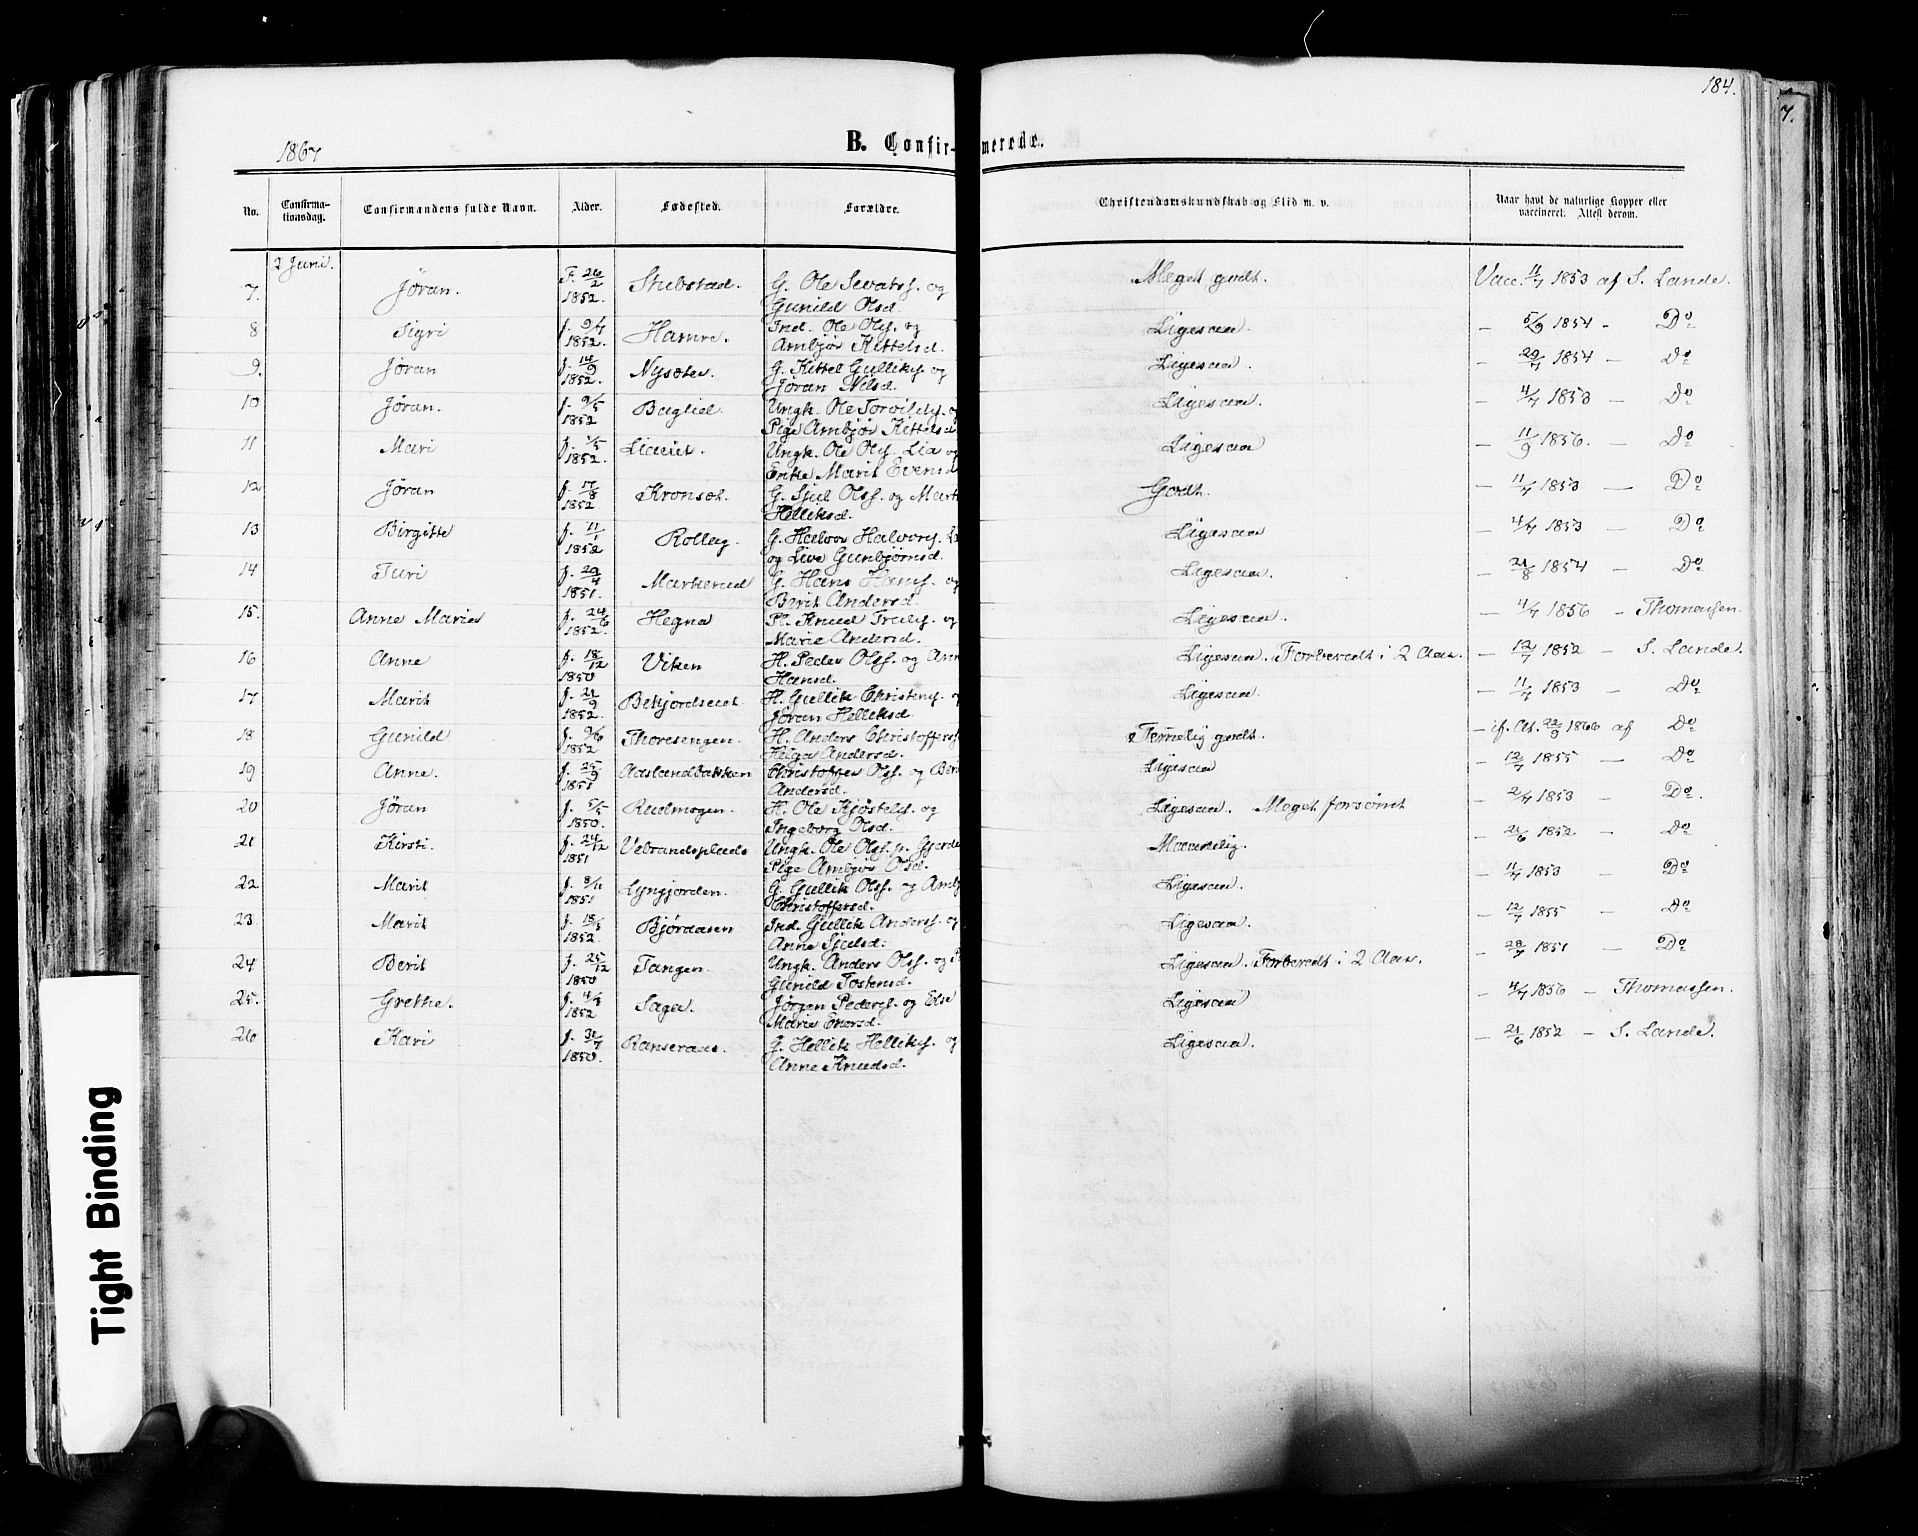 184.
7.
1867
B. Confir- merede.
No. Confirma-tionsdag. Confirmandens fulde Navn. Alder. Fødested. Forældre. Christendomskundskab og Flid m. v. Naar havt de naturlige Kopper eller vaccineret: Attest derom.
2 Juni.
7. Jøran. F. 26/2 1852. Stubstad. G. Ole Sevats. og Gunild Olsd. Meget godt. Vacc. 11/7 1853 af S. Lande.
8 Sigri f. 9/4 1852. Hamre. Ind. Ole Ols. og Ambjør Kittelsd. Ligesaa. – 5/9 1854 – Do
9. Jøran f. 14/9 1852. Nysæter. G. Kittel Gulliks. og Jøran Nilsd. Ligesaa. – 20/7 1854 – Do
10 Jøran. f. 9/5 1852 Ungk. Ole Torvilds. og Pige Ambjør Kittelsd. Ligesaa. – 4/7 1853 – Do
11 Mari f. 1/5 1852. Ungk. Ole Ols. Lia og Enke Marit Evensd Ligesaa – 11/9 1856. – Do
12 Jøran f. 17/8 1852 Kronset. G. Sjul Olss. og Marit Helliksd. Godt. – 11/7 1853 – Do
13 Birgitte f. 11/1 1852 Rollag. G. Halvor Halvors. og Live Gunbjørnsd. Ligesaa – 4/7 1853 – Do
14 Turi f. 29/4 1851. Markerud G. Hans Hans. og Berit Andersd. Ligesaa. – 21/8 1854 – Do
15. Anne Marie f. 24/6 1852. Hegna Pl. Knud Truls. og Marie Andersd. Ligesaa. – 4/7 1856 – Thomassen.
16 Anne f. 18/12 1850 Viken H. Peder Olss. og Ann Hansd. Ligesaa. Forberedt i 2 Aar. – 12/7 1852 – S. Lande.
17 Marit f. 21/9 1852. H. Gullik Christens. og Jøran Helliksd. Ligesaa. – 11/7 1853 – Do
18 Gunild f. 9/6 1852 Thoresengen. H. Anders Christoffers. Helga Andersd. Temelig godt. – if. At. 22/9 1866 af Do
19 Anne. f. 25/9 1851 Aaslandbakken Christoffer Olss. og Beri Andersd. Ligesaa – 12/7 1855 – Do
20 Jøran f. 5/5 1850. Rudmogen. H. Ole Kjøstels. og Ingeborg Olsd. Ligesaa. Meget forsømt – 2/7 1853 – Do.
21 Kirsti. f. 24/12 1851 Vebrandsplads Ungk. Ole Olss. p. Gjorde Pige Ambjør Olsd. Maadelig. – 21/6 1852 – Do
22 Marit f. 8/11 1851 Lyngjorden. G. Gullik Olss. og Ambj Christoffersd. Ligesaa. – 4/7 1853 – Do
23 Marit f. 18/5 1852. Bjørdaasen Ind. Gullik Anders. og Anne Sjulsd. Ligesaa. – 12/7 1855 – Do
24 Berit f. 25/12 1850 Tangen. Ungk. Anders Olss. og P Gunild Tostensd. Ligesaa. Forberedt i 2 Aar. – 28/7 1851 – Do
25. Grethe. f. 4/5 1852 Saga. Jørgen Peders. og Else Marie Enersd. Ligesaa – 4/7 1856 – Thomassen.
26 Kari f. 31/7 1850. G. Hellik Helliks. og Anne Knudsd. Ligesaa. – 21/6 1852 – S. Lande.
Tight Binding